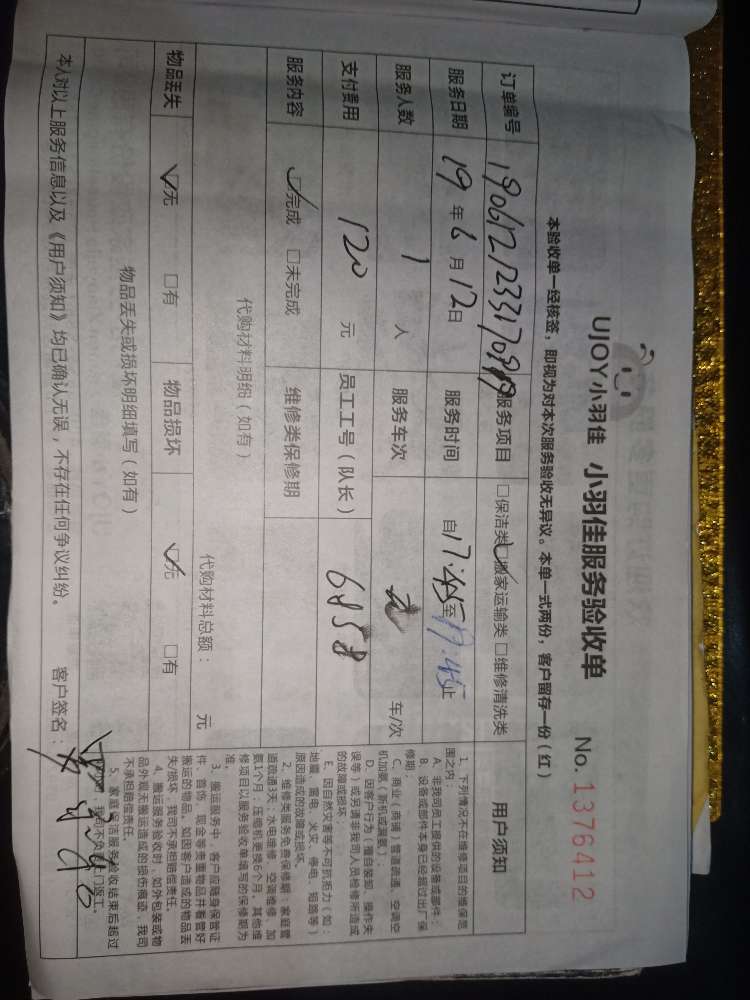 UJOY小羽佳 小羽佳服务验收单 No. 1376412
本验收单一经核签，即视为对本次服务验收无异议。本单一式两份，客户留存一份（红）
订单编号 服务项目 □保洁类 ☑搬家运输类 □维修清洗类
服务日期 19年6月12日 服务时间 自17:45至19:45止
服务人数 1人 服务车次 车/次
支付费用 120元 员工工号（队长） 6858
服务内容 ☑完成 □未完成 维修类保修期
代购材料明细（如有） 代购材料总额： 元
物品丢失 ☑无 □有 物品损坏 ☑无 □有
物品丢失或损坏明细填写（如有）
本人对以上服务信息以及《用户须知》均已确认无误，不存在任何争议纠纷。 客户签名：
用户须知
1、下列情况不在维修项目的维保范
围之内：
A、非我司员工提供的设备或部件；
B、设备或部件本身已经超过出厂保
修期；
C、商业（商铺）管道疏通、空调空
机加氨（新机试漏氨）；
D、因客户行为（擅自装卸、操作失
误等）或另请非我司人员检修所造成
的故障或损坏；
E、因自然灾害等不可抗拒力（如：
地震、雷电、火灾、停电、短路等）
原因造成的故障或损坏。
2、维修类服务免费保修期：家庭管
道疏通3天；水电维修、空调维修、加
氨1个月；压缩机更换6个月。其他维
修项目以服务验收单填写的保修期为
准。
3、搬运服务中，客户应随身保管证
件、首饰、现金等贵重物品并看管好
搬运的物品。如因客户造成的物品丢
失/损坏，我司不承担赔偿责任。
4、搬运服务验收时，如外包装或物
品外观无搬运造成的损伤痕迹，我司
不承担赔偿责任。
5、家庭保洁服务验收结束后超过
我司不负责上门返工。